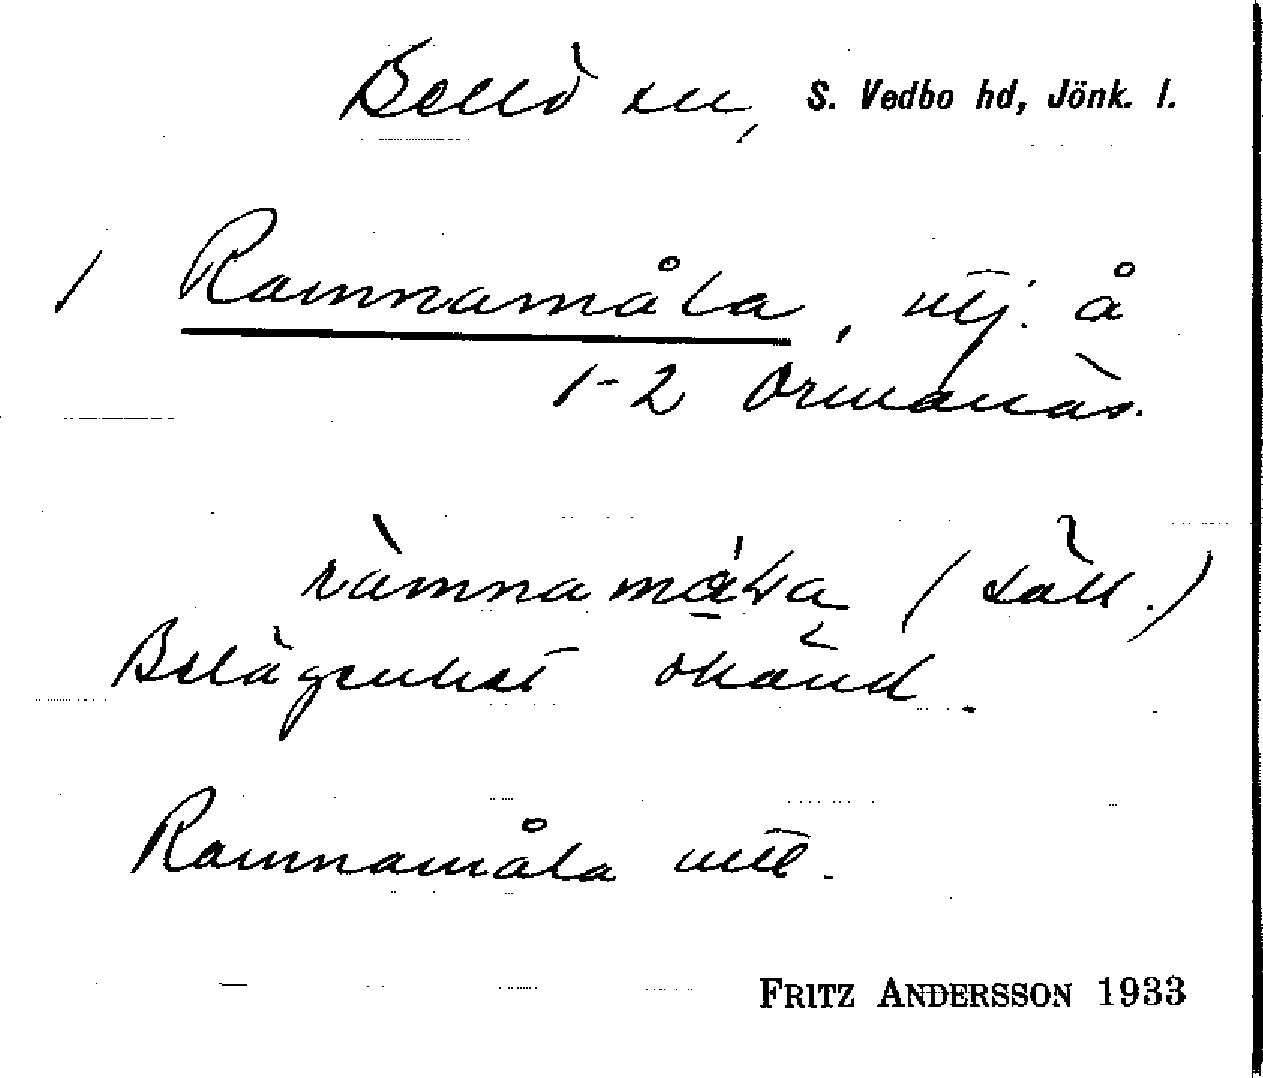 Bellö sn, S. Vedbo hd, Jönk. l.
1 Ramnamåla, utj. å
1-2 Ormanäs.
ràmnamå̀La (säll.)
Belägenhet okänd.
Ramnamåla
FRITZ ANDERSSON 1933